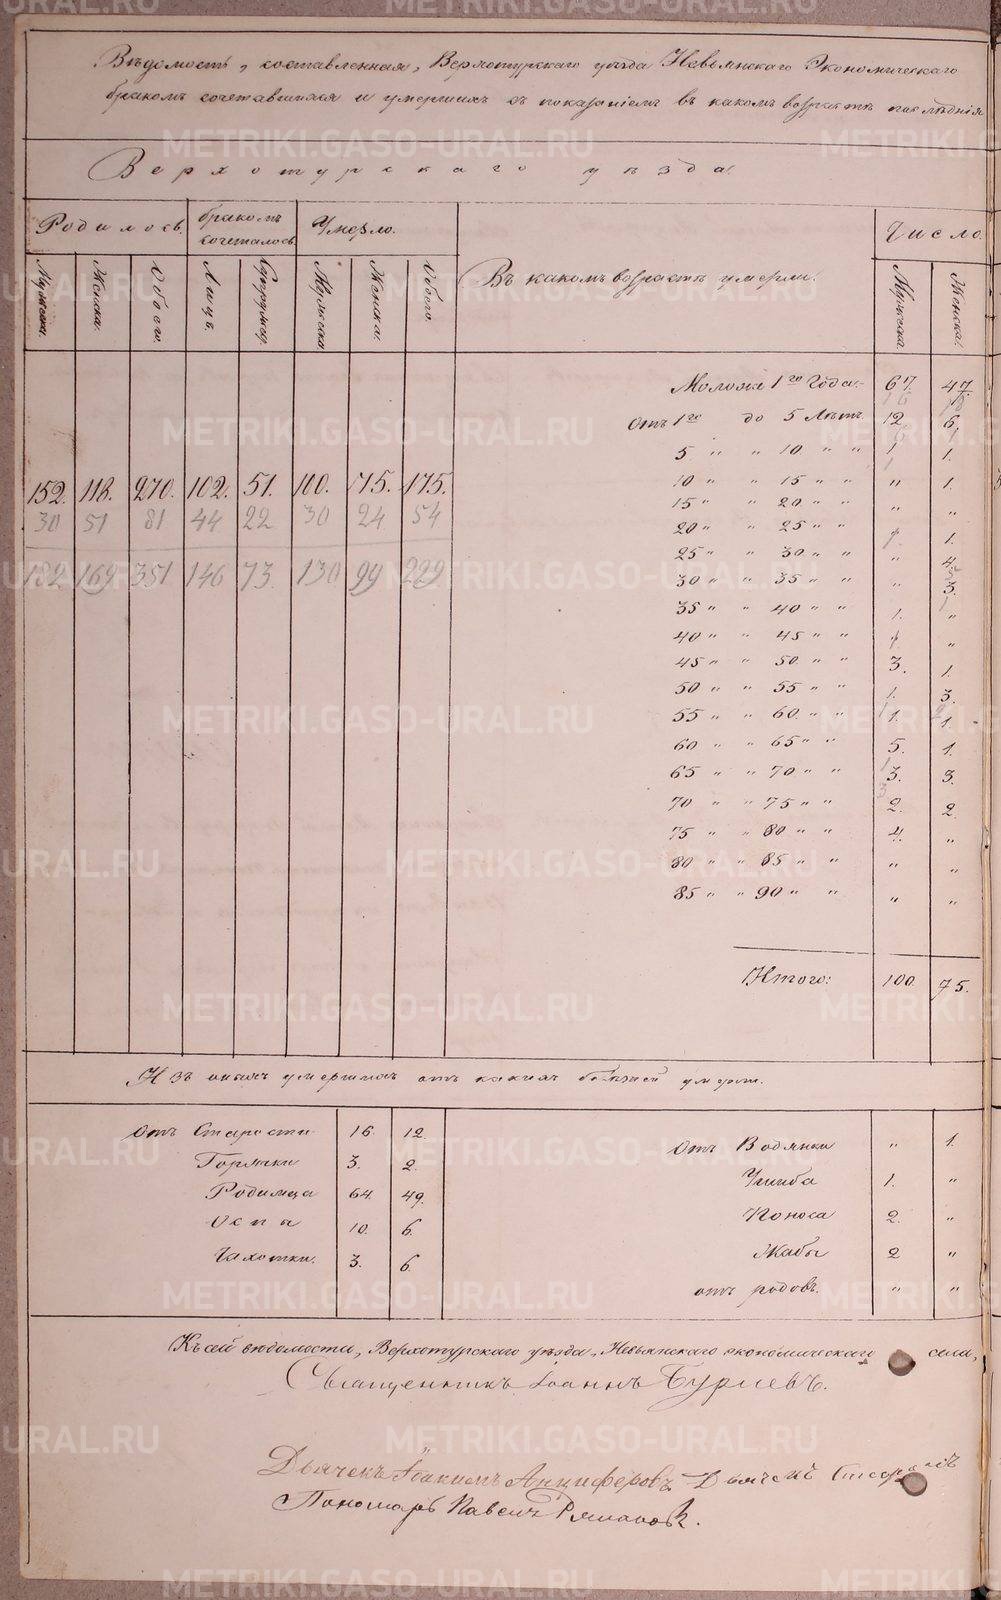 Вѣдомость, составленная, Верхотурскаго уѣзда Невьянскаго Экономическаго
бракомъ сочетавшихся и умершихъ съ показаніемъ въ какомъ возрастѣ послѣднія
Верхотурскаго уѣзда.
Родилось. бракомъ сочеталось. Умерло. Въ какомъ возрастѣ умерли. Число
Мужеска. Женска. Обоего. Лицъ. Супружес. Мужеска. Женска. Обоего. Мужеска. Женска.
Моложе 1го Года. 67. 47.
Отъ 1го до 5 Лѣтъ. 12 6.
5 " " 10 " " 1 1.
152. 118. 270. 102. 51. 100. 75. 175.
30 51 81 44 22 30 24 54
182 169 351 146 73. 130 99 229
10 " " 15 " " " 1.
15 " " 20 " " " "
20 " " 25 " " 1. 1.
25 " " 30 " " " 4.
30 " " 35 " " " 3.
35 " " 40 " " 1. "
40 " " 45 " " 1 "
45 " " 50 " " 3. 1.
50 " " 55 " " 1. 3.
55 " " 60 " " 1. 1.
60 " " 65 " " 5. 1.
65 " " 70 " " 3. 3.
70 " " 75 " " 2. 2.
75 " " 80 " " 4. "
80 " " 85 " " " "
85 " " 90 " " " "
Итого: 100. 75.
Изъ оныхъ умершихъ отъ какихъ болѣзней умерли.
Отъ Старости 16. 12. Отъ Водянки " 1.
Горячки 3. 2. Ушиба 1. "
Родимца 64. 49. Поноса 2. "
Оспы 10. 6. Жабы 2 "
Чахотки. 3. 6. отъ родовъ. " "
Къ сей вѣдомости, Верхотурскаго уѣзда, Невьянскаго экономическаго села,
Священникъ Іоаннъ Бурцевъ.
Дьячекъ Іоакимъ Анциферовъ. Дьячекъ
Пономарь Павелъ
METRIKI.GASO-URAL.RU